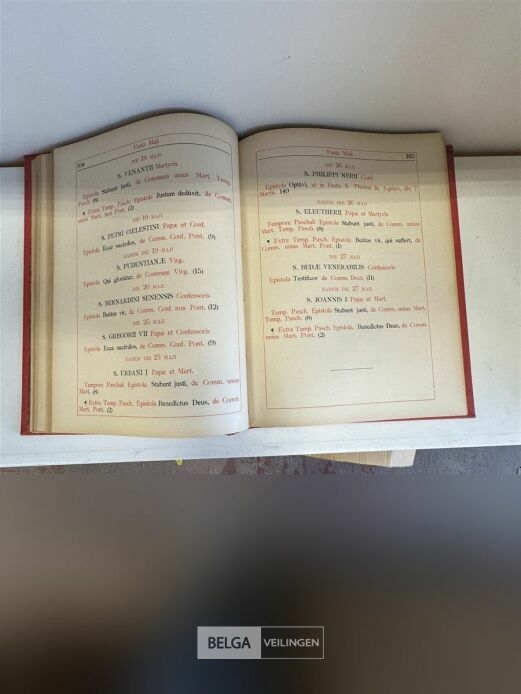 164
Festa Maji
DIE 18 MAJI
S. VENANTII Martyris
Epistola Stabunt justi, de Communi unius Mart. Temp.
Pasch. (8)
¶ Extra Temp. Pasch. Epistola Justum dedúxit, de Comm.
unius Mart. non Pont. (2)
DIE 19 MAJI
S. PETRI CŒLESTINI Papæ et Conf.
Epistola Ecce sacérdos, de Comm. Conf. Pont. (9)
EADEM DIE 19 MAJI
S. PUDENTIANÆ Virg.
Epistola Qui gloriátur, de Communi Virg. (15)
DIE 20 MAJI
S. BERNARDINI SENENSIS Confessoris
Epistola Beátus vir, de Comm. Conf. non Pont. (12)
DIE 25 MAJI
S. GREGORII VII Papæ et Confessoris
Epistola Ecce sacérdos, de Comm. Conf. Pont. (9)
EADEM DIE 25 MAJI
S. URBANI I Papæ et Mart.
Tempore Paschali Epistola Stabunt justi, de Comm. unius
Mart. (8)
¶ Extra Temp. Pasch. Epistola Benedictus Deus, de Comm.
Mart. Pont. (2)
Festa Maji
165
DIE 26 MAJI
S. PHILIPPI NERII Conf.
Epistola Optávi, ut in Festo S. Thomæ de Aquino, die 7
Martii. 149
EADEM DIE 26 MAJI
S. ELEUTHERII Papæ et Martyris
Tempore Paschali Epistola Stabunt justi, de Comm. unius
Mart. Temp. Pasch. (8)
¶ Extra Temp. Pasch. Epistola Beátus vir, qui suffert, de
Comm. unius Mart. Pont. (1)
DIE 27 MAJI
S. BEDÆ VENERABILIS Confessoris
Epistola Testificor de Comm. Doct. (11)
EADEM DIE 27 MAJI
S. JOANNIS I Papæ et Mart.
Temp. Pasch. Epistola Stabunt justi, de Comm. unius Mart.
Temp. Pasch. (8)
¶ Extra Temp. Pasch. Epistola. Benedíctus Deus, de Comm.
unius Mart. Pont. (2)
BELGA VEILINGEN